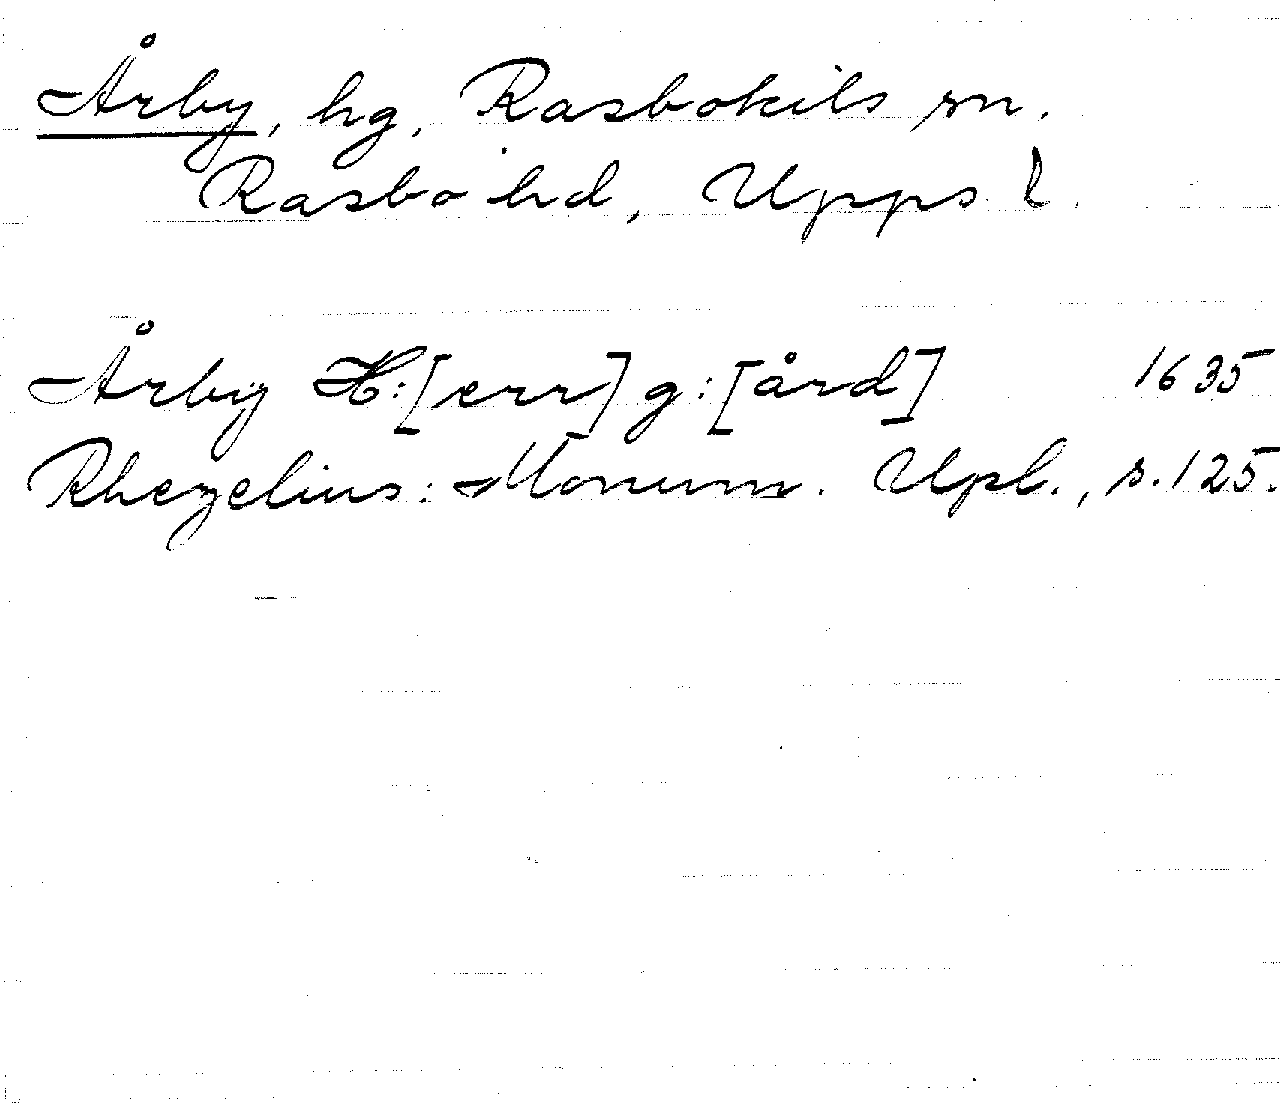 Årby, hg, Rasbokils sn.
Rasbo hd, Upps. l.
Årby H:[err] g:[ård] 1635
Rhezelius: Monum. Upl., s. 125.